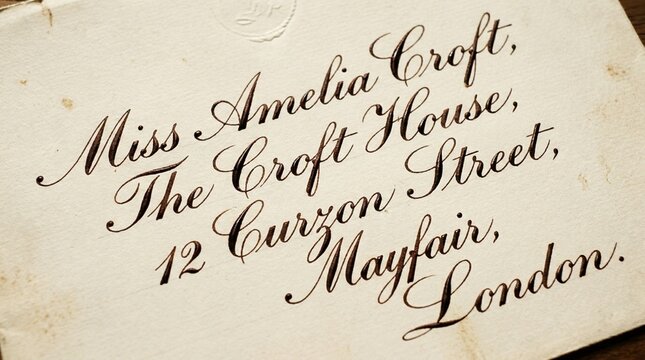 Miss Amelia Croft,
The Croft House,
12 Curzon Street,
Mayfair,
London.